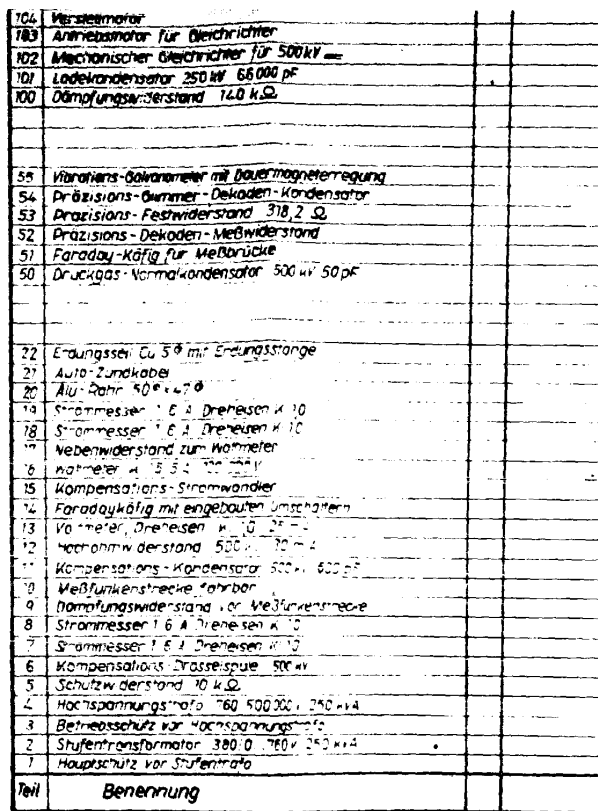 104 Verstellmotor
103 Antriebsmotor für Gleichrichter
102 Mechanischer Gleichrichter für 500 kV
101 Ladekondensator 250 kV 66000 pF
100 Dämpfungswiderstand 140 kΩ
55 Vibrations-Galvanometer mit Dauermagneterregung
54 Präzisions-Glimmer-Dekaden-Kondensator
53 Präzisions-Festwiderstand 318,2 Ω
52 Präzisions-Dekaden-Meßwiderstand
51 Faraday-Käfig für Meßbrücke
50 Druckgas-Normalkondensator 500 kV 50 pF
22 Erdungsseil Cu 5 Φ mit Erdungsstange
21 Auto-Zündkabel
20 Alu-Rohr 50 Φ x 47 Φ
19 Strommesser 1 6 A Dreheisen K 10
18 Strommesser 1 6 A Dreheisen K 10
17 Nebenwiderstand zum Wattmeter
16 Wattmeter
15 Kompensations-Stromwandler
14 Faradaykäfig mit eingebauten Umschaltern
13 Voltmeter, Dreheisen
12 Hochohmwiderstand 500
11 Kompensations-Kondensator
10 Meßfunkenstrecke fahrbar
9 Dämpfungswiderstand vor Meßfunkenstrecke
8 Strommesser 1 6 A Dreheisen K 10
7 Strommesser 1 6 A Dreheisen K 10
6 Kompensations-Drosselspule 500 kV
5 Schutzwiderstand 10 kΩ
4 Hochspannungstrafo 760 500000 250 kVA
3 Betriebsschütz vor Hochspannungstrafo
2 Stufentransformator 380 0 760 V 250 kVA
1 Hauptschütz vor Stufentrafo
Teil Benennung